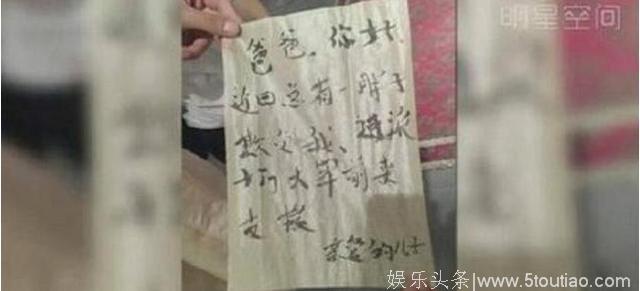 明星空间
爸爸。你好
近日总有一胖子
欺负我、速派
十万大军前来
支援
的儿子
娱乐头条/www.5toutiao.com